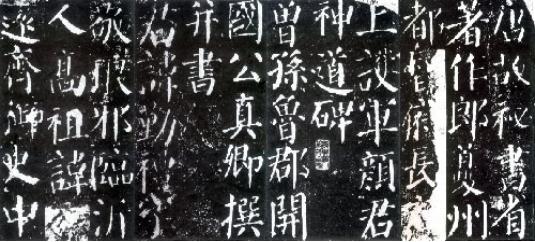 唐故秘書省
著作郎夔州
都督府長
上護軍顏君
神道碑
曾孫魯郡開
國公真卿撰
并書
君諱勤禮字
敬琅邪臨沂
人高祖諱
遠齊御史中